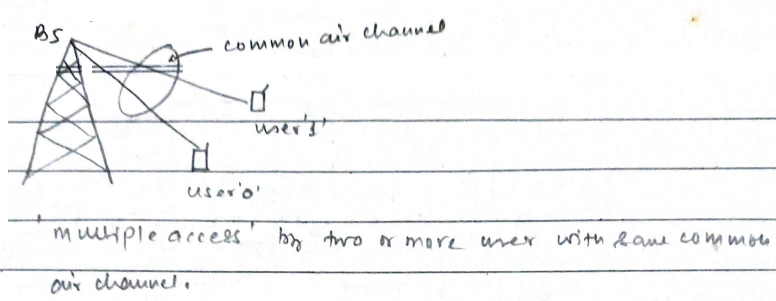 BS
common air channel
user '1'
user '0'
'multiple access' by two or more user with same common
air channel.